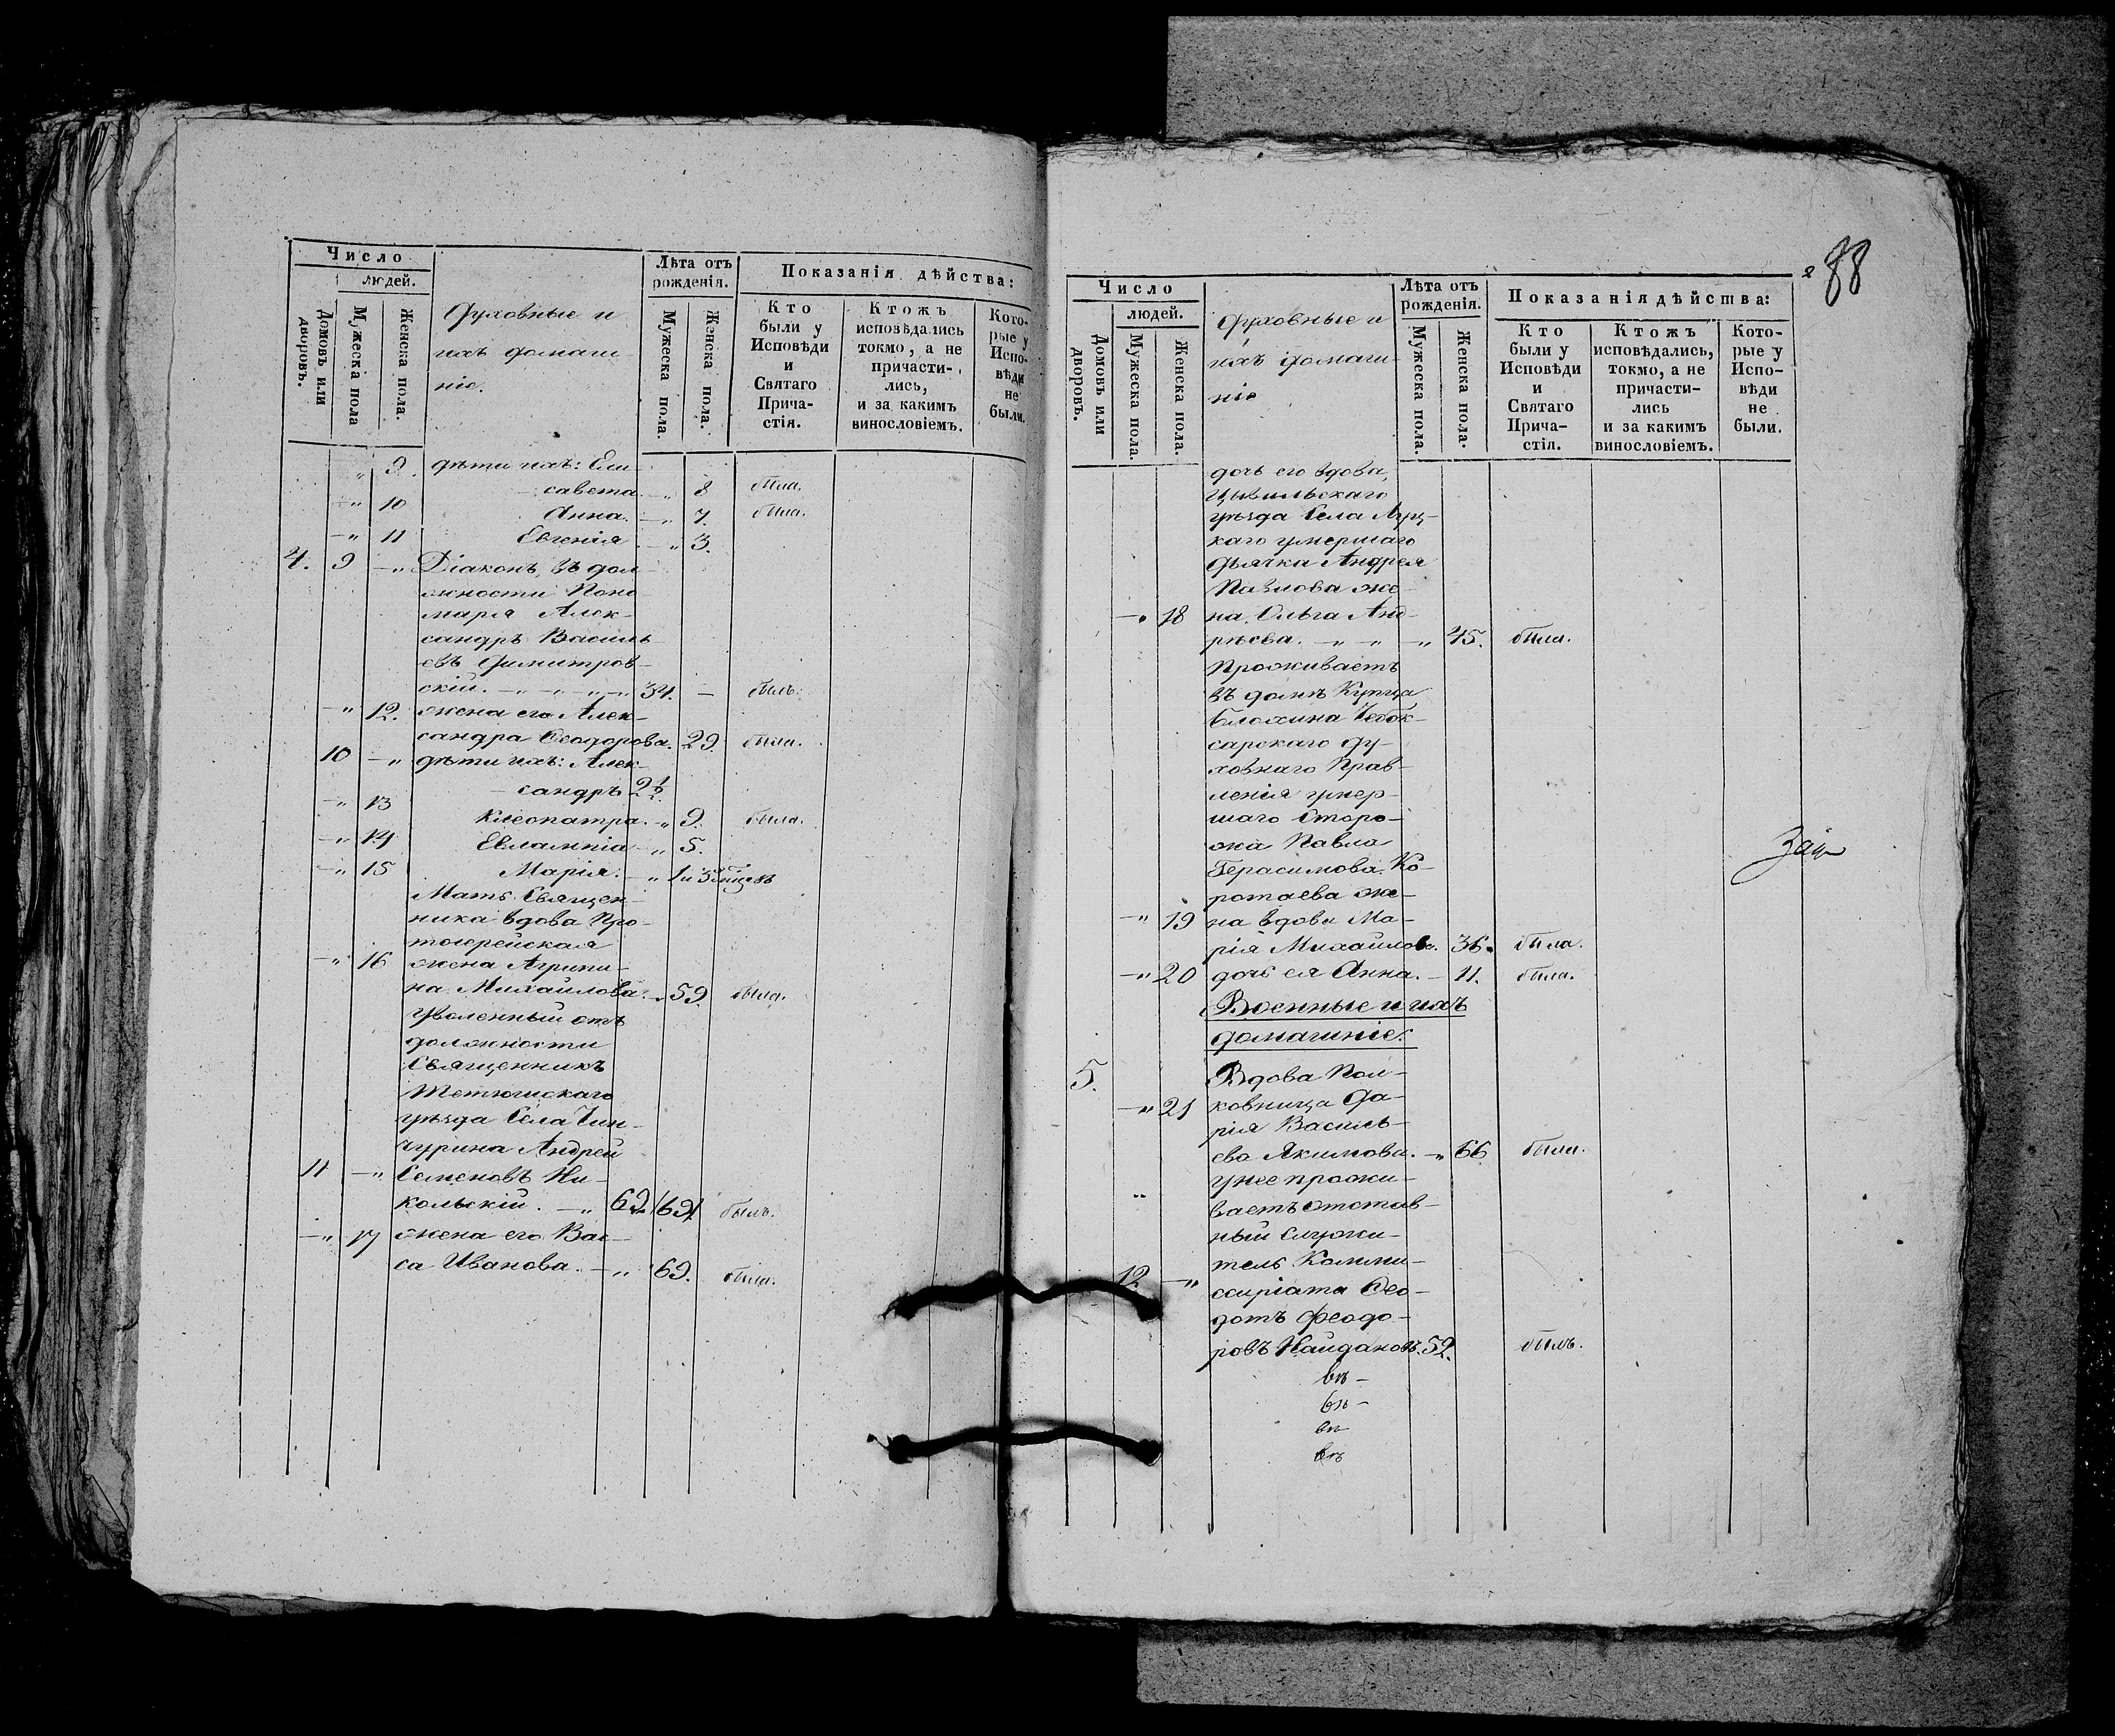 Число
людей.
Домовъ или дворовъ.
Мужеска пола
Женска пола.
Духовные и
ихъ домаш-
ніе.
Лѣта отъ
рожденія.
Мужеска пола.
Женска пола.
Показанія дѣйства:
Кто
были у
Исповѣди
и
Святаго
Прича-
стія.
Ктожъ
исповѣдались
токмо, а не
причасти-
лись,
и за какимъ
винословіемъ.
Кото-
рые у
Испо-
вѣди
не
были.
" 9. дѣти ихъ: Ели-
савета. - " 8 была.
- " 10 Анна. - " 7. была.
- " 11 Евгенія - " 3.
4. 9 - " Діаконъ, въ дол-
жности Поно-
маря Алек-
сандръ Василь-
евъ Димитров-
скій. - " - " - " - " 34. - былъ.
- " 12. жена его Алек-
сандра Ѳеодорова. 29. была.
10 - " дѣти ихъ: Алек-
сандръ 2½.
- " 13 Клеопатра. - " 9. была.
- " 14 Евлампіа - " 5.
- " 15 Марія. - " 1 и 3 мѣсяцевъ
Мать Священ-
ника вдова Про-
тоіерейская
- " 16 жена Агрипи-
на Михайлова. - " 59. была.
Уволенный отъ
должности
Священникъ
Тетюшскаго
уѣзда Села Чин-
чурина Андрей
11 - " Семеновъ Ни-
кольскій. - " 62. 69 былъ.
- " 17 жена его Вас-
са Иванова. - " 69. была.
88
Число
людей.
Домовъ или дворовъ.
Мужеска пола.
Женска пола.
Духовные и
ихъ домаш-
ніе
Лѣта отъ
рожденія.
Мужеска пола.
Женска пола.
Показанія дѣйства:
Кто
были у
Исповѣди
и
Святаго
Прича-
стія.
Ктожъ
исповѣдались,
токмо, а не
причасти-
лись
и за какимъ
винословіемъ.
Кото-
рые у
Испо-
вѣди
не
были.
дочь его вдова,
Цывильскаго
уѣзда Села Луц-
каго умершаго
дьячка Андрея
Павлова же-
- " 18 на, Ольга Анд-
рѣева. - " - " - " 45. была.
Проживаетъ
въ домѣ Купца
Блохина Чебок-
сарскаго Ду-
ховнаго Прав-
ленія умер-
шаго Сторо-
жа Павла
Герасимова Ко-
ротаева же-
- " 19 на вдова Ма-
рія Михайлова. 36. была.
- " 20 дочь ея Анна. - 11. была.
Военные и ихъ
домашніе:
5. Вдова Пол-
- " 21 ковница Да-
рія Василь-
ева Якимова. - " 66 была.
У нее прожи-
" ваетъ отстав-
ный служи-
тель Комми-
12 - " ссиріата Ѳео-
дотъ Феодо-
ровъ Найдановъ. 52. былъ.